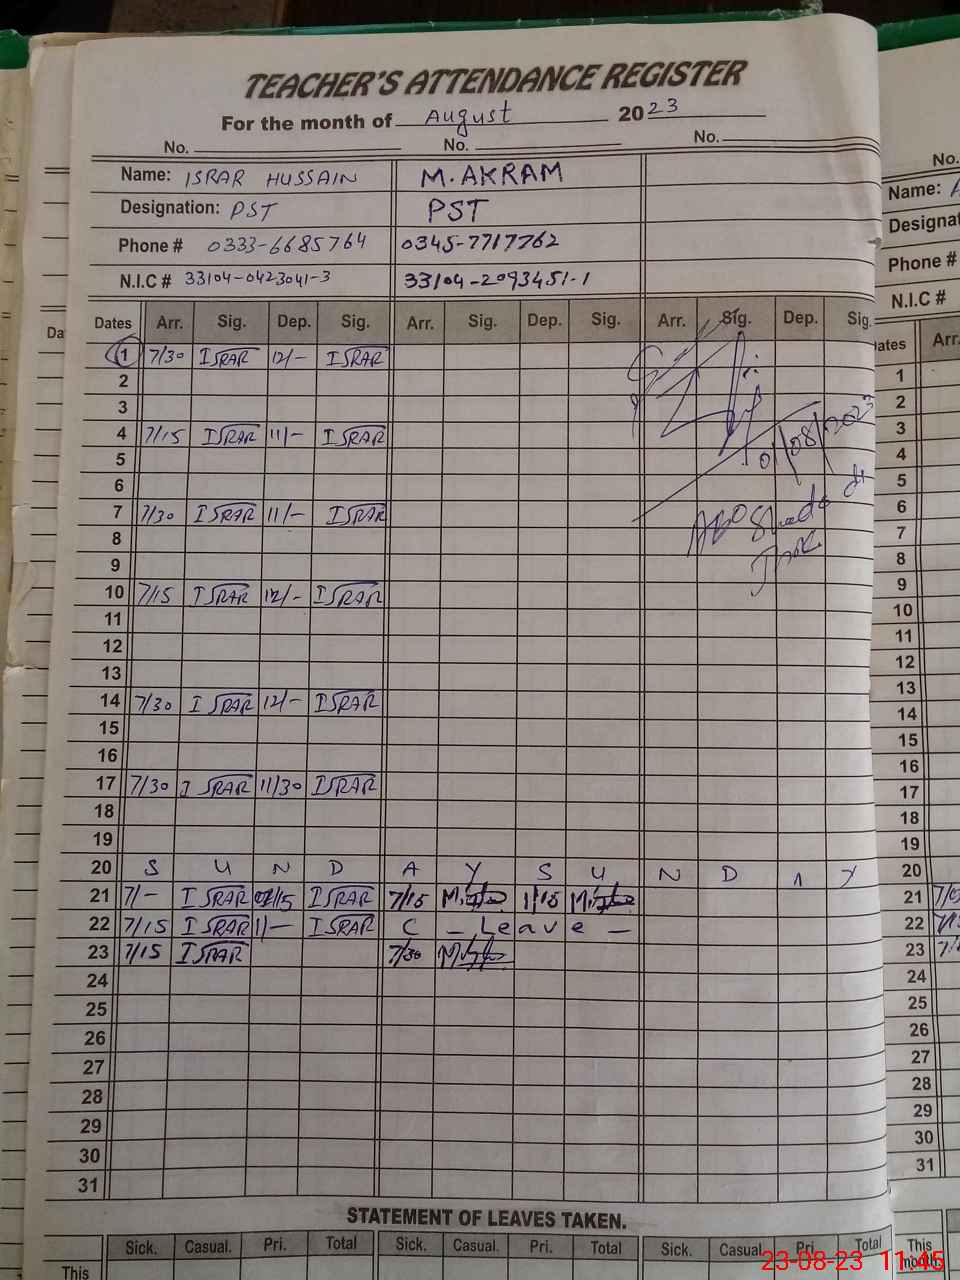 TEACHER'S ATTENDANCE REGISTER
For the month of August 2023
No. No. No.
Name: ISRAR HUSSAIN M. AKRAM
Designation: PST PST
Phone # 0333-6685764 0345-7717762
N.I.C # 33104-0423041-3 33104-2093451-1
Dates Arr. Sig. Dep. Sig. Arr. Sig. Dep. Sig. Arr. Sig. Dep. Sig.
1 7/30 ISRAR 12/- ISRAR
2
3
01/08/2023
4 7/15 ISRAR 11/- ISRAR
5
6
7 7/30 ISRAR 11/- ISRAR
8
9
10 7/15 ISRAR 12/- ISRAR
11
12
13
14 7/30 ISRAR 12/- ISRAR
15
16
17 7/30 ISRAR 11/30 ISRAR
18
19
20 S U N D A Y S U N D A Y
21 7/- ISRAR ISRAR 7/15 1/15
22 7/15 ISRAR 1/- ISRAR C - Leave -
23 7/15 ISRAR 7/30
24
25
26
27
28
29
30
31
STATEMENT OF LEAVES TAKEN.
Sick. Casual. Pri. Total Sick. Casual. Pri. Total Sick. Casual. Pri. Total
This
No.
Name:
Phone #
N.I.C #
Arr.
1
2
3
4
5
6
7
8
9
10
11
12
13
14
15
16
17
18
19
20
21
22
23
24
25
26
27
28
29
30
31
This
month
23-08-23 11:45